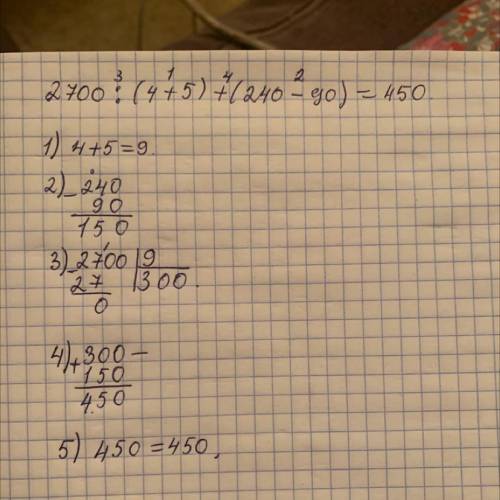 2700 : (4 + 5) + (240 - 90) = 450
3 1 4 2
1) 4 + 5 = 9.
2) - 240
90
150
3) - 2700 | 9
27 300.
0
4) + 300 -
150
450
5) 450 = 450,